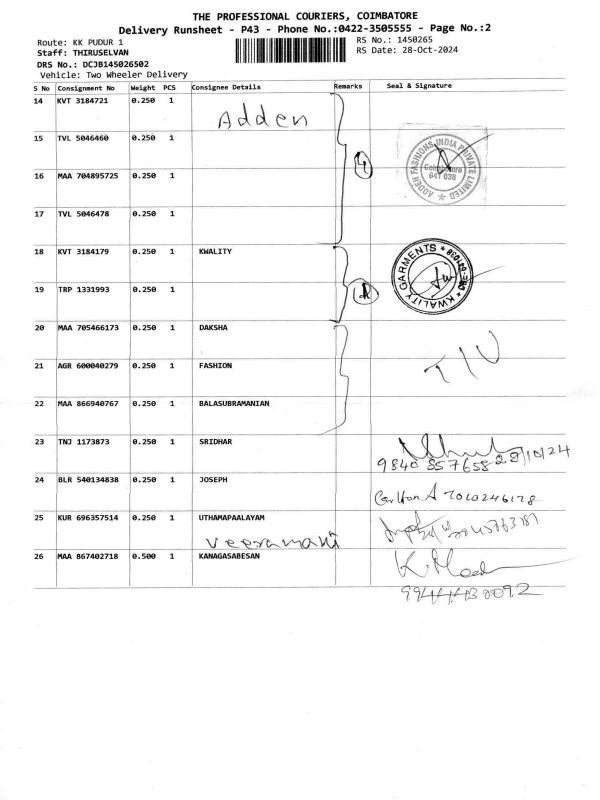 THE PROFESSIONAL COURIERS, COIMBATORE
Delivery Runsheet - P43 - Phone No.:0422-3505555 - Page No.:2
Route: KK PUDUR 1
RS No.: 1450265
Staff: THIRUSELVAN
RS Date: 28-Oct-2024
DRS No.: DCJB145026502
Vehicle: Two Wheeler Delivery
S No Consignment No Weight PCS Consignee Details Remarks Seal & Signature
14 KVT 3184721 0.250 1
Adden
15 TVL 5046460 0.250 1
ADDEN FASHIONS INDIA PRIVATE LIMITED
Coimbatore
641 038
16 MAA 704895725 0.250 1
17 TVL 5046478 0.250 1
18 KVT 3184179 0.250 1 KWALITY
KWALITY GARMENTS
19 TRP 1331993 0.250 1
20 MAA 705466173 0.250 1 DAKSHA
21 AGR 600040279 0.250 1 FASHION
22 MAA 866940767 0.250 1 BALASUBRAMANIAN
23 TNJ 1173873 0.250 1 SRIDHAR
9840 857658 28/10/24
24 BLR 540134838 0.250 1 JOSEPH
25 KUR 696357514 0.250 1 UTHAMAPAALAYAM
Veeramani
26 MAA 867402718 0.500 1 KANAGASABESAN